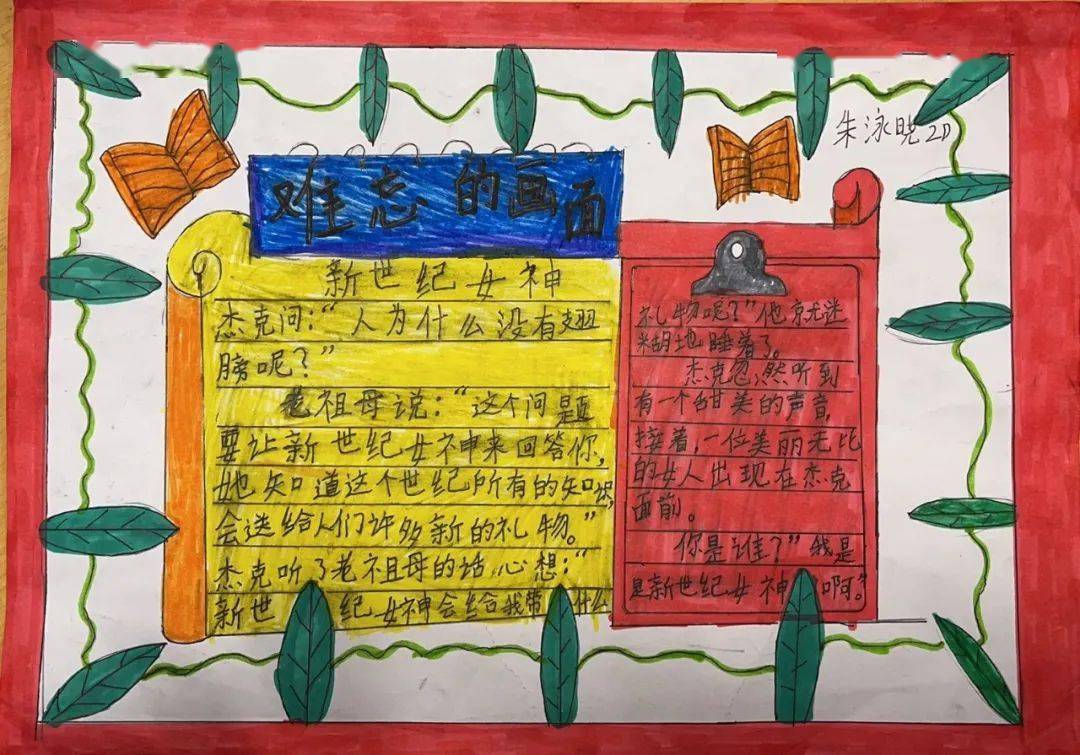 朱泳晓 2D
难忘的画面
新世纪女神
杰克问：“人为什么没有翅
膀呢？”
老祖母说：“这个问题
要让新世纪女神来回答你，
她知道这个世纪所有的知识，
会送给人们许多新的礼物。”
杰克听了老祖母的话，心想：“
新世纪女神会给我带什么
礼物呢？”他就迷
糊地睡着了。
杰克忽然听到
有一个甜美的声音，
接着，一位美丽无比
的女人出现在杰克
面前。
你是谁？”我是
是新世纪女神啊。”